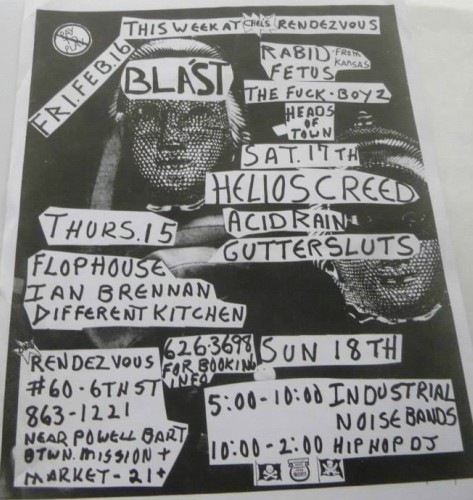 PAY TO PLAY
THIS WEEK AT CHEL'S RENDEZVOUS
FRI. FEB. 16
BLAST
RABID FROM KANSAS
FETUS
THE FUCK-BOYZ
HEADS
OF
TOWN
SAT. 17TH
HELIOS CREED
ACID RAIN
GUTTERSLUTS
THURS. 15
FLOPHOUSE
IAN BRENNAN
DIFFERENT KITCHEN
RENDEZVOUS
#60-6TH ST
863-1221
NEAR POWELL BART
BTWN. MISSION +
MARKET - 21+
626-3698
FOR BOOKING
INFO
SUN 18TH
5:00-10:00 INDUSTRIAL
NOISE BANDS
10:00-2:00 HIP HOP DJ